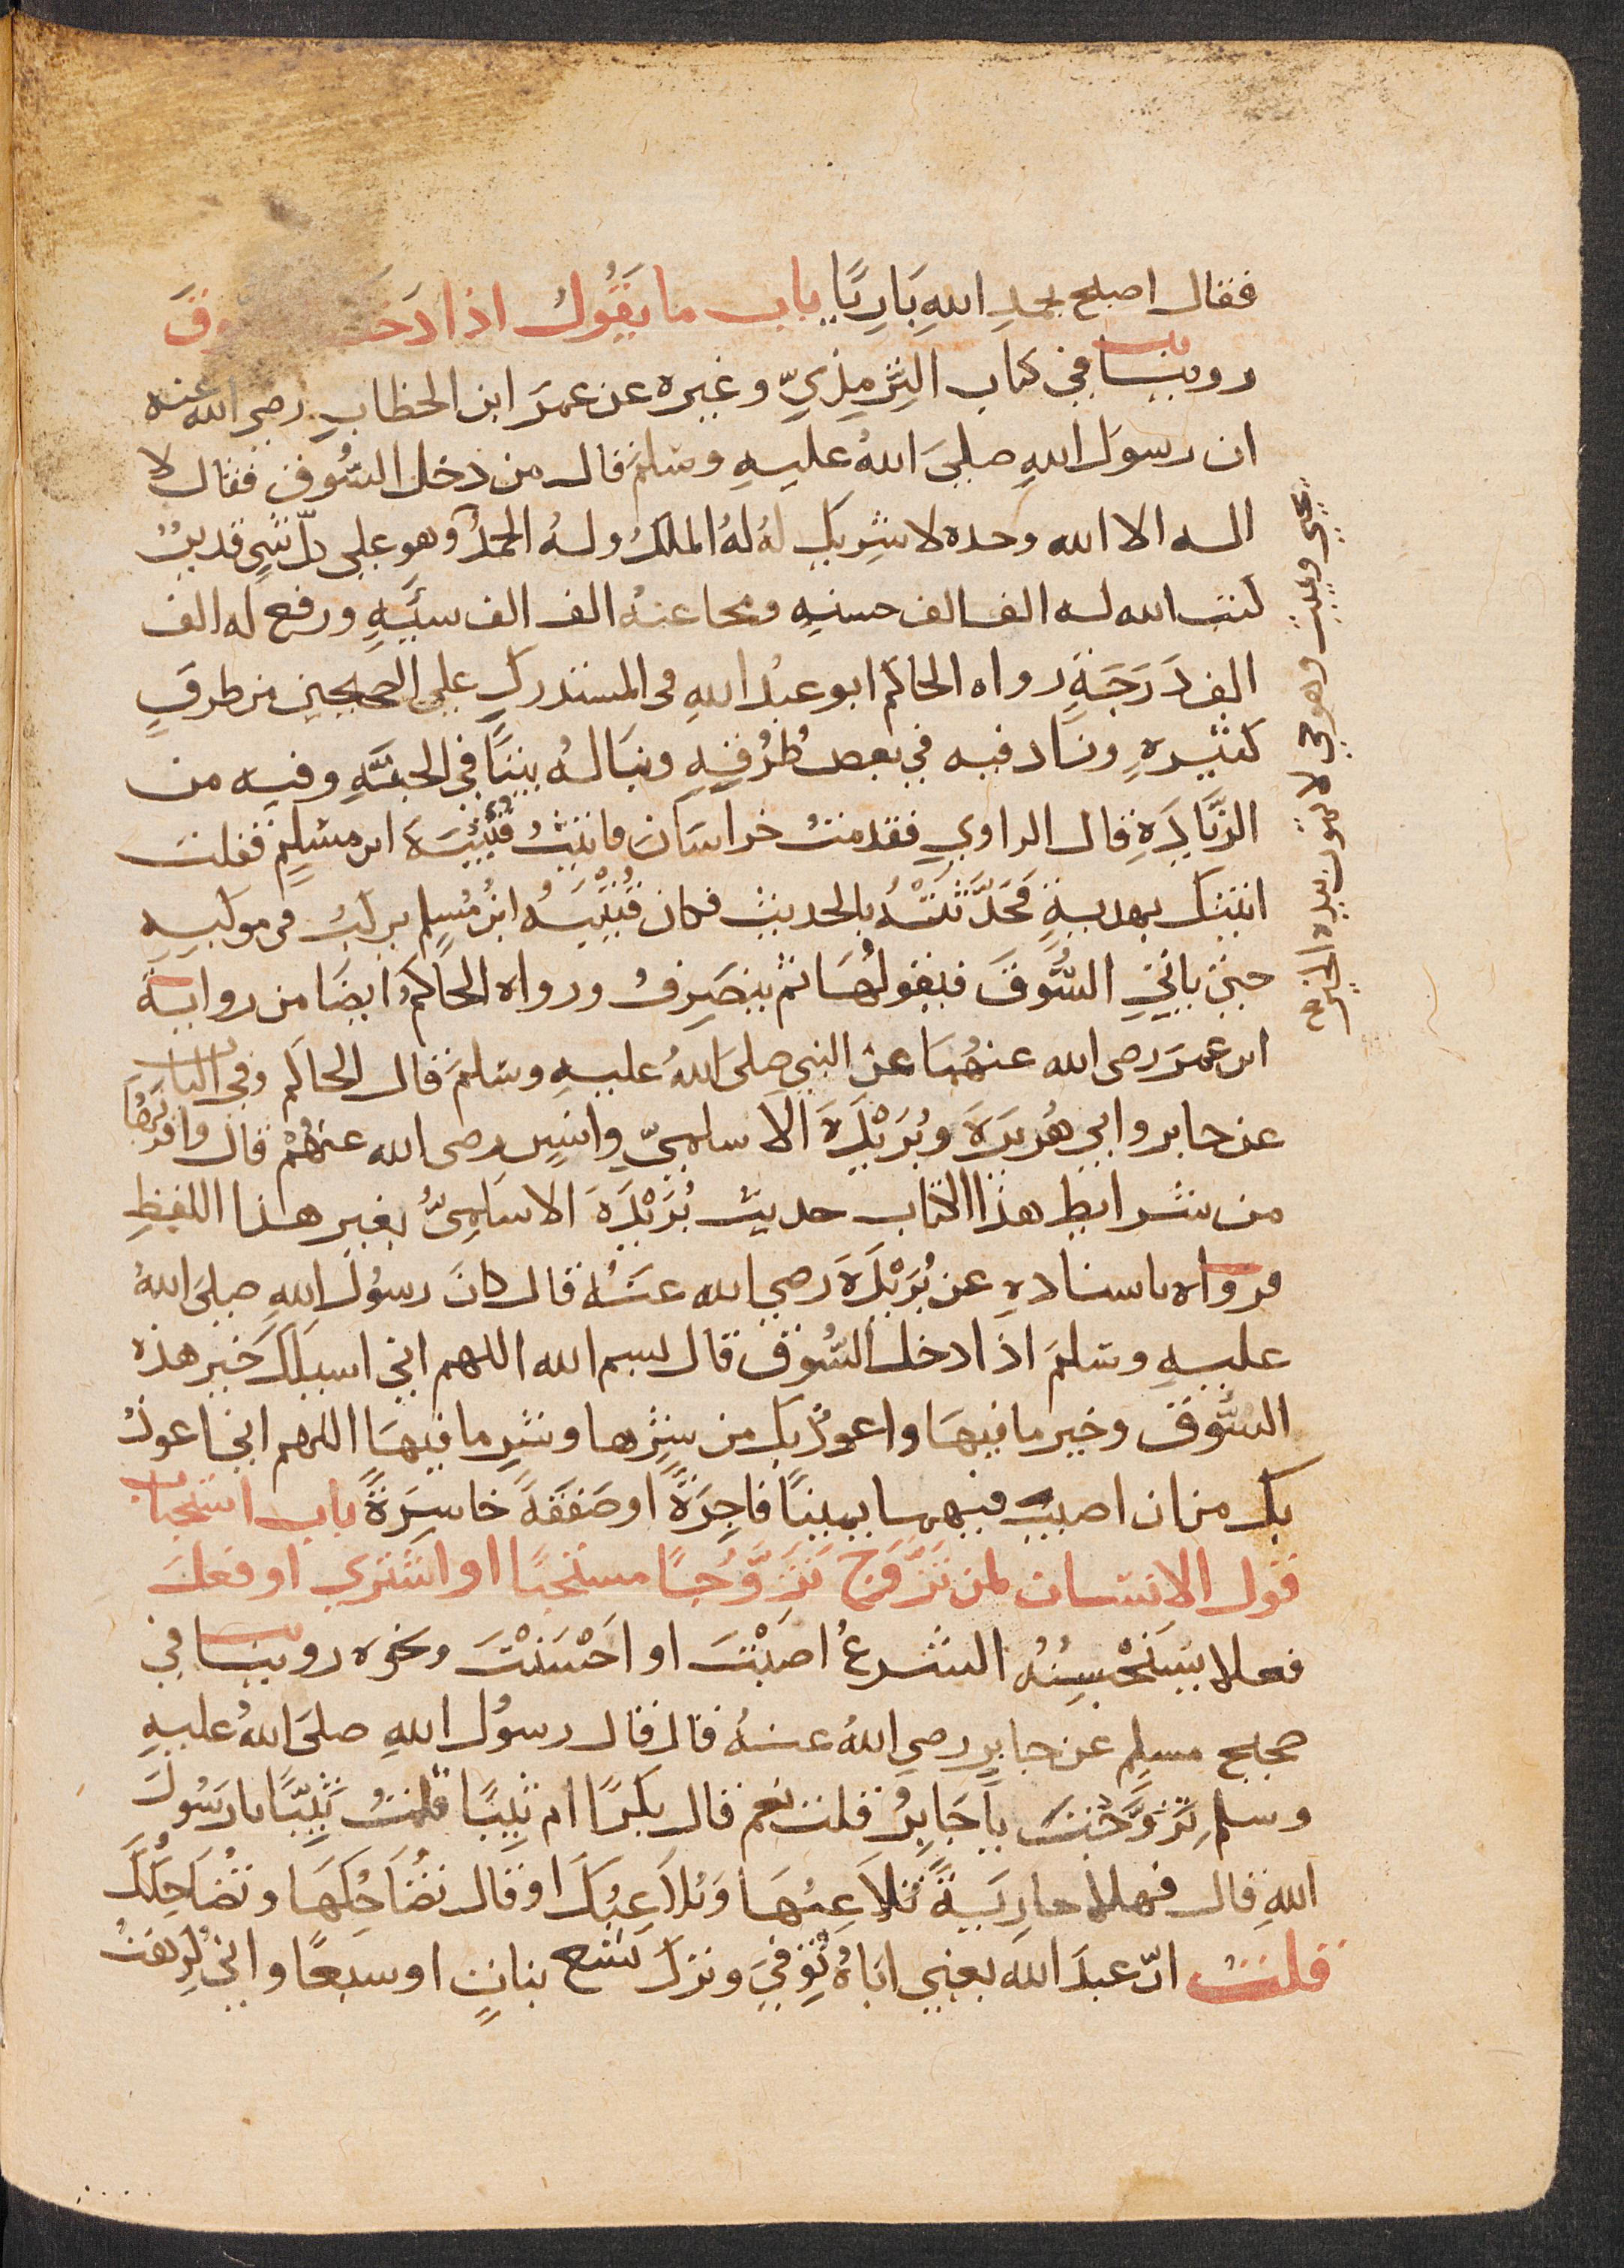 فقال اصلح بحمدِ اللهِ بَارِيًا باب ما يَقُولُ اذا دَخَلَ السوقَ
روينا في كتاب التِرْمِذِيّ وغيره عن عمرَ ابن الخطابِ رضي الله عنه
ان رسولَ اللهِ صلىَ اللهُ عليهِ وسَلمَ قال من دخل السُّوق فقال لا
اله الا الله وحده لا شرِيكَ لهُ لهُ الملكُ ولهُ الحمدُ وهو على كلّ شيٍ قديرٌ
كتب الله له الف الف حسنهٍ ومحا عنهُ الف الف سيَّيهٍ ورفع له الف
الف دَرَجَةٍ رواه الحاكم ابو عبْدُ اللهِ فى المستدركِ على الصحيحين من طرقٍ
كثيرهٍ وزاد فيه في بعص طُرُقِهِ وبنَا لهُ بيتًا في الجنّهِ وفيه من
الزّيَادَةِ قال الراوي فقدمتُ خراسَانَ فاتيتُ قُتَيْبَةَ ابن مسْلِمٍ فقلت
اتيتك بهديةٍ فَحَدَّثتْهُ بالحديث فكان قُتَيْبَهُ ابْنُ مُسِلم يركبُ في موكبهِ
حتى ياتيَ السُّوقَ فيقولُهَا ثم ينصَرِفُ ورواه الحَاكمُ ايضًا من رواية
ابن عمرَ رضى الله عنهُمَا عن النبي صلىَ اللهُ عليهِ وسَلمَ قال الحاكم وفي الباب
عن جابر وابي هُريرَةَ وبُرَيْدَةَ الاسلميّ وانسٍ رضى الله عنهُمْ قال واقربُهَا
من شرايط هذا الكتاب حديث بُرَيْدَةَ الاسلَمِىُّ بغير هذا اللفظِ
فرواه باسنادهِ عن بُرَيْدَةَ رضي الله عنهُ قال كانَ رسُولُ اللهِ صلىَ اللهُ
عليهِ وسَلمَ اذا دخل السُّوق قال بسم الله اللهم اني اسيلك خير هذه
السُّوق وخير ما فيهَا واعوذُ بكَ من شرِّها وشرِ ما فيهَا اللهم اني اعوذُ
بك من ان اصيبَ فيها يمينًا فاجِرَةً او صَفقَةً خاسِرَةً باب استحباب
قول الانسان لمن تَزَّوَجَ تَزَوُّجًا مستحبًا او اشترى او فعلَ
فعلا يَسْتَحْسِنُهُ الشرعُ اصَبْتَ او احْسَنْتَ ونحوه روينا في
صحيح مسلِم عن جابرٍ رضي اللهُ عنهُ قال قال رسولُ اللهِ صلىَ اللهُ عليهِ
وسلم تَزوَّجْتَ يا جَابِرُ قلت نعم قال بكرًا ام ثيِبًا قلتُ ثَيِّبًا يا رَسُولَ
اللهِ قال فهلا جارِيَةً تُلاَعِبُهَا وَتُلاَعِبُكَ او قال تضَاحِكهَا وتُضَاحِككَ
قلتُ انّ عبدَ الله يعني ابَاهُ تُوُفِيَ وتركَ تسْع بناتٍ او سبعًا واني كرِهتُ
يحيي ويميت وهو حي لا يموت بيده الخير صح